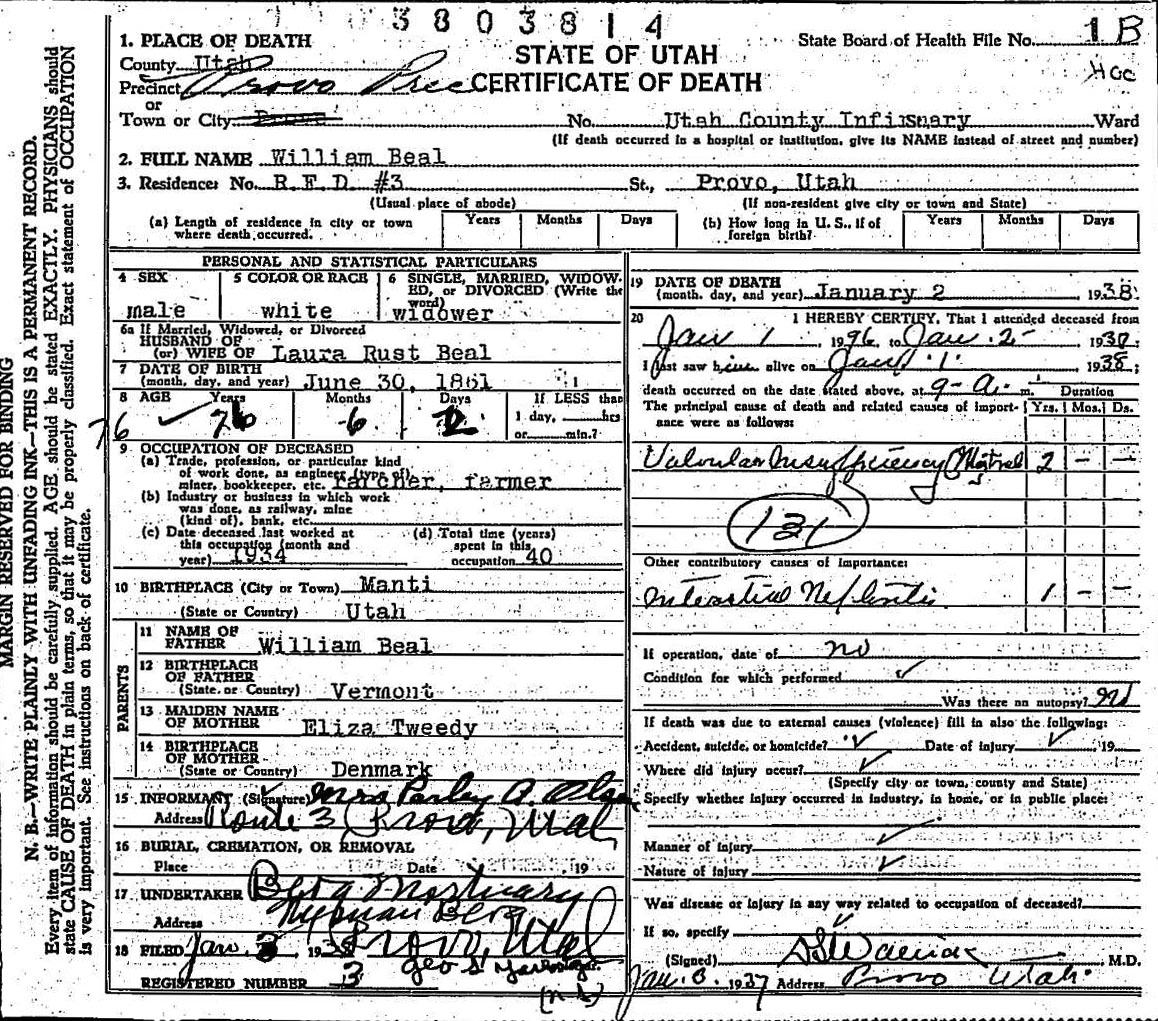 3803814
1. PLACE OF DEATH
STATE OF UTAH
State Board of Health File No. 1 B
County Utah
CERTIFICATE OF DEATH
Hcc
Precinct Provo Prec
or
Town or City Provo No. Utah County Infirmary Ward
(If death occurred in a hospital or institution, give its NAME instead of street and number)
2. FULL NAME William Beal
3. Residence: No. R.F.D. #3 St., Provo, Utah
(Usual place of abode) (If non-resident give city or town and State)
(a) Length of residence in city or town where death occurred. Years Months Days
(b) How long in U. S., if of foreign birth? Years Months Days
PERSONAL AND STATISTICAL PARTICULARS
4 SEX male
5 COLOR OR RACE white
6 SINGLE, MARRIED, WIDOWED, or DIVORCED (Write the word) widower
6a If Married, Widowed, or Divorced
HUSBAND OF
(or) WIFE OF Laura Rust Beal
7 DATE OF BIRTH
(month, day, and year) June 30, 1861
8 AGE Years Months Days If LESS than
76 76 6 2 1 day, hrs
or min.?
9 OCCUPATION OF DECEASED
(a) Trade, profession, or particular kind
of work done, as engineer (type of)
miner, bookkeeper, etc. rancher, farmer
(b) Industry or business in which work
was done, as railway, mine
(kind of), bank, etc.
(c) Date deceased last worked at
this occupation (month and
year) 1934
(d) Total time (years)
spent in this
occupation 40
10 BIRTHPLACE (City or Town) Manti
(State or Country) Utah
PARENTS
11 NAME OF
FATHER William Beal
12 BIRTHPLACE
OF FATHER
(State or Country) Vermont
13 MAIDEN NAME
OF MOTHER Eliza Tweedy
14 BIRTHPLACE
OF MOTHER
(State or Country) Denmark
15 INFORMANT (Signature) Mrs Parley A. Olsen
Address Route 3 Provo, Utah
16 BURIAL, CREMATION, OR REMOVAL
Place Date 19
17 UNDERTAKER Berg Mortuary
Address
18 FILED Jan. 3 1938 Provo, Utah
REGISTERED NUMBER 3
19 DATE OF DEATH
(month, day, and year) January 2 1938
20 I HEREBY CERTIFY, That I attended deceased from
Jan 1 to Jan. 2
I last saw him alive on Jan 1 1938;
death occurred on the date stated above, at 9 a. m. Duration
The principal cause of death and related causes of importance were as follows: Yrs. Mos. Ds.
Valvular Insufficiency Mitral 2 - -
131
Other contributory causes of importance:
Interstitial Nephritis 1 - -
If operation, date of no
Condition for which performed
Was there an autopsy? No
If death was due to external causes (violence) fill in also the following:
Accident, suicide, or homicide? Date of injury 19
Where did injury occur?
(Specify city or town, county and State)
Specify whether injury occurred in industry, in home, or in public place:
Manner of injury
Nature of injury
Was disease or injury in any way related to occupation of deceased?
If so, specify
(Signed) M.D.
1937 Address Provo Utah
MARGIN RESERVED FOR BINDING
N. B.—WRITE PLAINLY WITH UNFADING INK—THIS IS A PERMANENT RECORD.
Every item of information should be carefully supplied. AGE should be stated EXACTLY. PHYSICIANS should
state CAUSE OF DEATH in plain terms, so that it may be properly classified. Exact statement of OCCUPATION
is very important. See instructions on back of certificate.